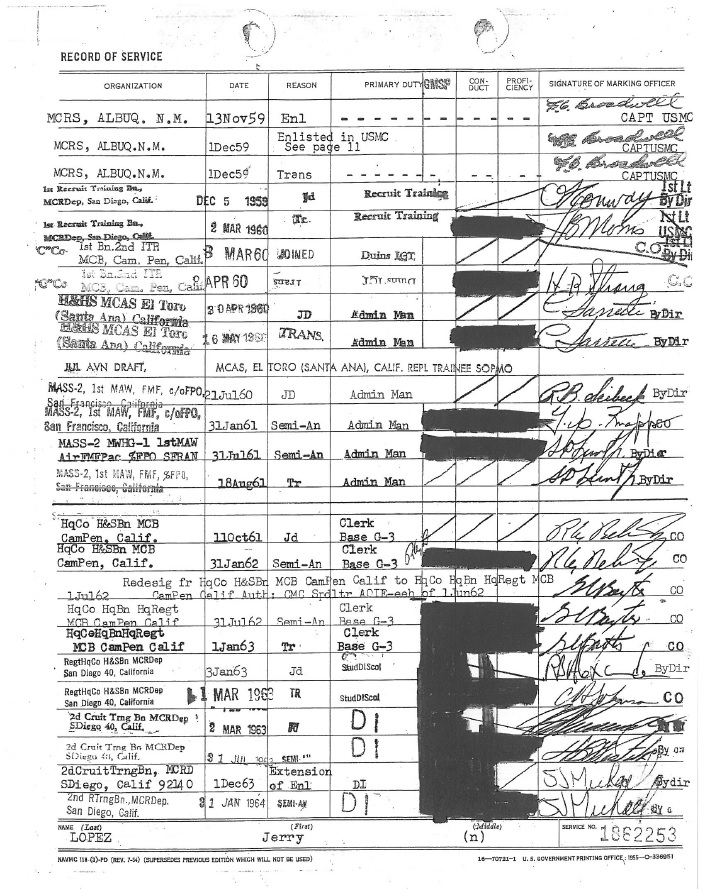 RECORD OF SERVICE
ORGANIZATION DATE REASON PRIMARY DUTY GMSP CON-DUCT PROFI-CIENCY SIGNATURE OF MARKING OFFICER
F.C. Broadwell
MCRS, ALBUQ. N.M. 13Nov59 Enl - - - - - - - - - - CAPT USMC
Enlisted in USMC Broadwell
MCRS, ALBUQ.N.M. 1Dec59 See page 11 CAPTUSMC
F.C. Broadwell
MCRS, ALBUQ.N.M. 1Dec59 Trans - - - - - - - - - - CAPTUSMC
1st Recruit Training Bn., 1st Lt
MCRDep, San Diego, Calif. DEC 5 1959 Jd Recruit Training Conway By Dir
1st Recruit Training Bn., Tr. Recruit Training 1st Lt
MCRDep, San Diego, Calif. 2 MAR 1960 USMC
"C"Co 1st Bn.2nd ITR C.O.
MCB, Cam. Pen, Calif. 8 MAR60 JOINED By Dir
"C"Co 1st Bn.2nd ITR
MCB, Cam. Pen, Calif. APR 60 Strang C.O
H&HS MCAS El Toro
(Santa Ana) California 20APR1960 JD Admin Man ByDir
H&HS MCAS El Toro
(Santa Ana) California 16 MAY 1960 TRANS. Admin Man ByDir
JUL AVN DRAFT, MCAS, EL TORO (SANTA ANA), CALIF. REPL TRAINEE SOPMO
MASS-2, 1st MAW, FMF, c/oFPO, 21Jul60 JD Admin Man R.B. ByDir
San Francisco, California
MASS-2, 1st MAW, FMF, c/oFPO,
San Francisco, California 31Jan61 Semi-An Admin Man
MASS-2 MWHG-1 1stMAW
AirFMFPac %FPO SFRAN 31Jul61 Semi-An Admin Man ByDir
MASS-2, 1st MAW, FMF, %FPO,
San Francisco, California 18Aug61 Tr Admin Man ByDir
HqCo H&SBn MCB Clerk
CamPen, Calif. 11Oct61 Jd Base G-3 CO
HqCo H&SBn MCB Clerk
CamPen, Calif. 31Jan62 Semi-An Base G-3 CO
Redesig fr HqCo H&SBn MCB CamPen Calif to HqCo HqBn HqRegt MCB
1Jul62 CamPen Calif Auth: CMC Srdltr AO1E-eeh of 1Jun62 CO
HqCo HqBn HqRegt Clerk
MCB CamPen Calif 31Jul62 Semi-An Base G-3 CO
HqCoHqBnHqRegt Clerk
MCB CamPen Calif 1Jan63 Tr Base G-3 CO
RegtHqCo H&SBn MCRDep
San Diego 40, California 3Jan63 Jd StudDIScol ByDir
RegtHqCo H&SBn MCRDep
San Diego 40, California 1 MAR 1963 TR StudDIScol CO
2d Cruit Trng Bn MCRDep
SDiego 40, Calif. 2 MAR 1963 DI
2d Cruit Trng Bn MCRDep
SDiego 40, Calif. 31 JUL 1963 SEMI-AN DI
2dCruitTrngBn, MCRD Extension
SDiego, Calif 92140 1Dec63 of Enl DI Bydir
2nd RTrngBn., MCRDep.
San Diego, Calif. 31 JAN 1964 SEMI-AN DI
NAME (Last) (First) (Middle) SERVICE NO.
LOPEZ Jerry (n) 1862253
NAVMC 118(3)-PD (REV. 7-54) (SUPERSEDES PREVIOUS EDITION WHICH WILL NOT BE USED) 16-70721-1 U. S. GOVERNMENT PRINTING OFFICE: 1955-O-336951